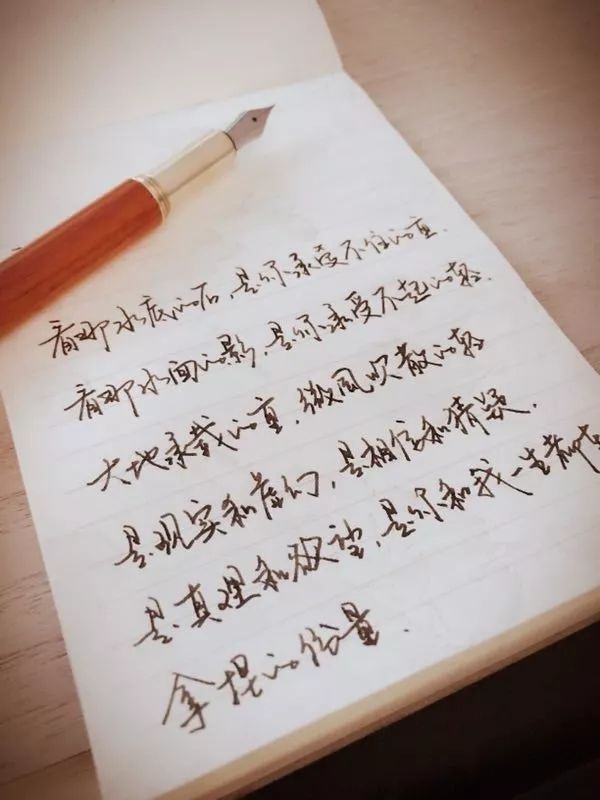 看那水底的石，是你承受不住的重．
看那水面的影，是你承受不起的轻．
大地承载的重，微风吹散的轻
是现实和虚幻，是相信和猜疑．
是真理和欲望，是你和我一生都在
拿捏的份量．